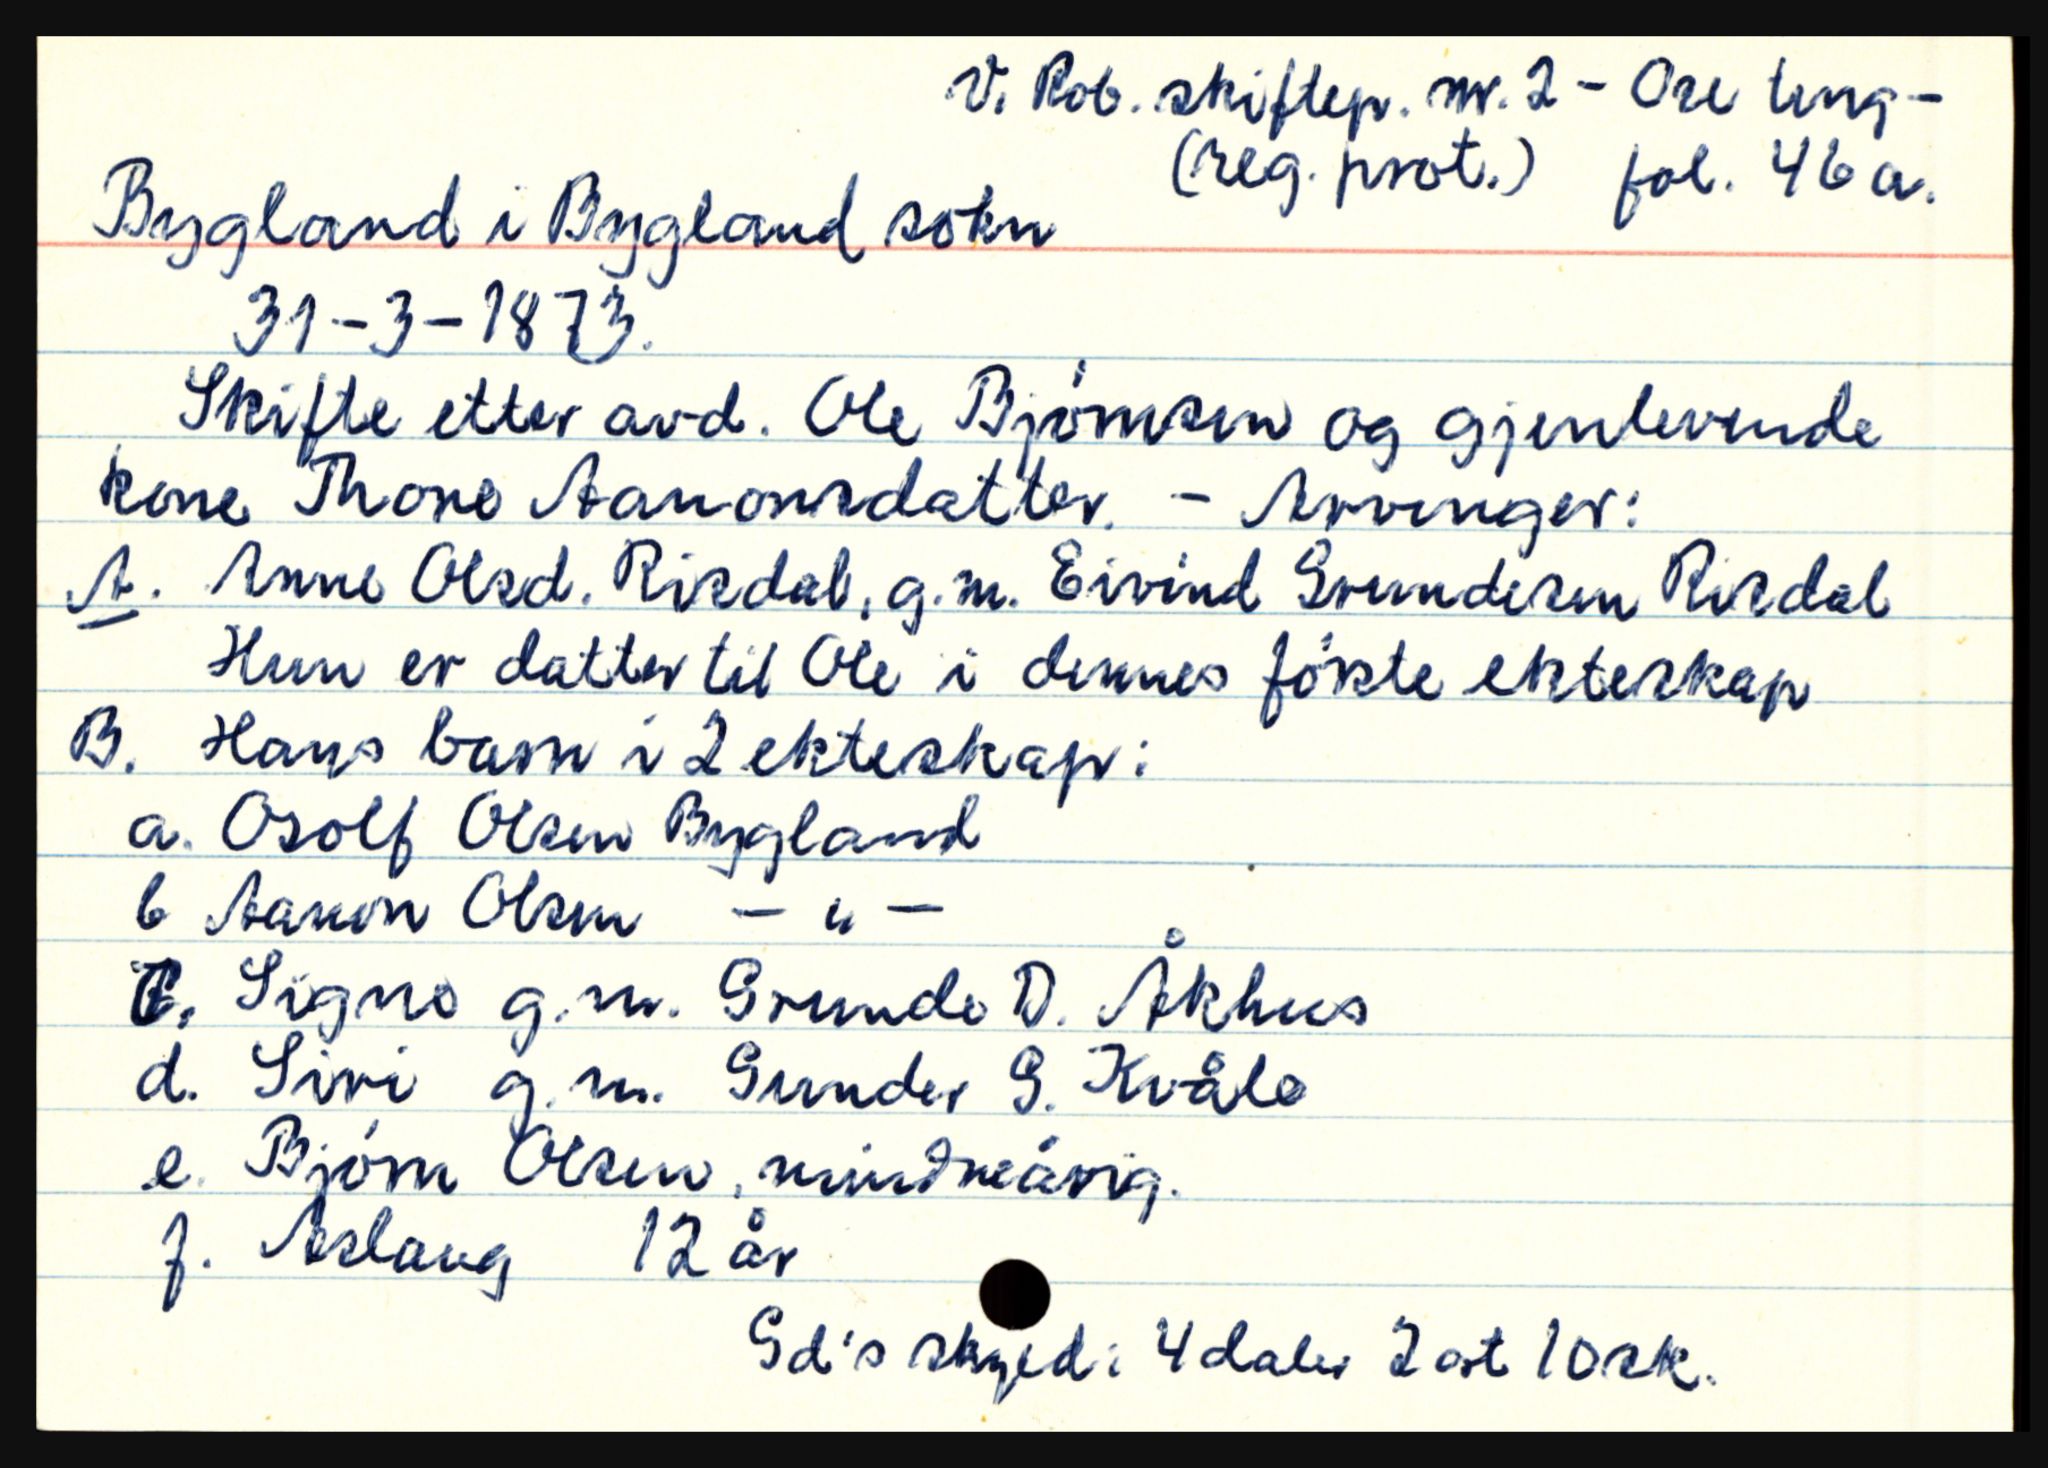 V. Rob. skiftep. nr. 2 - Ose ting -
(reg. prot.) fol. 46 a.
Bygland i Bygland sokn
31-3-1873.
Skifte etter avd. Ole Bjørnsen og gjenlevende
kone Thore Aanonsdatter. - Arvinger:
A. Anne Olsd. Risdal, g.m. Eivind Grundesen Risdal
Hun er datter til Ole i dennes første ekteskap
B. Hans barn i 2 ekteskap:
a. Osolf Olsen Bygland
b Aanon Olsen - " -
C. Signe g.m. Grunde D. Åkhus
d. Siri g.m. Gunder G. Kvåle
e. Bjørn Olsen, mindreårig.
f. Aslaug 12 år
Gd's skyld: 4 daler 2 ort 10 sk.